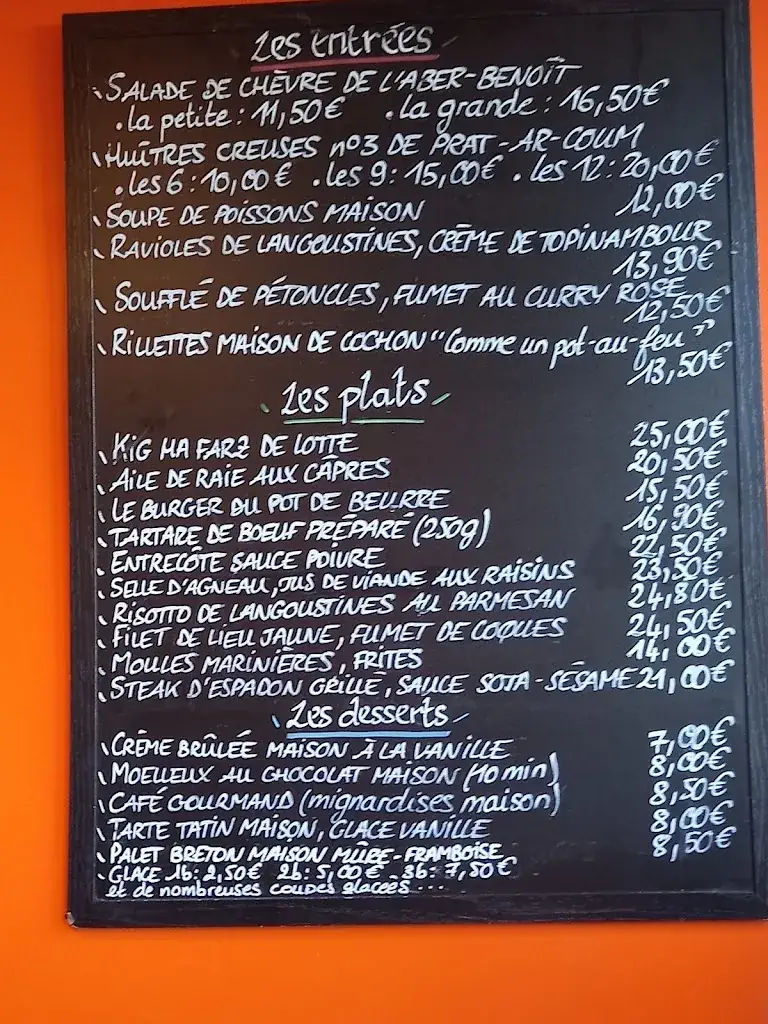 Les entrées
SALADE DE CHÈVRE DE L'ABER-BENOÎT
. la petite : 11,50€ . la grande : 16,50€
HUÎTRES CREUSES n°3 DE PRAT-AR-COUM
. les 6 : 10,00€ . les 9 : 15,00€ . les 12 : 20,00€
SOUPE DE POISSONS MAISON 12,00€
RAVIOLES DE LANGOUSTINES, CRÈME DE TOPINAMBOUR
13,90€
SOUFFLÉ DE PÉTONCLES, FUMET AU CURRY ROSE
12,50€
RILLETTES MAISON DE COCHON "Comme un pot-au-feu"
13,50€
Les plats
KIG HA FARZ DE LOTTE 25,00€
AILE DE RAIE AUX CÂPRES 20,50€
LE BURGER DU POT DE BEURRE 15,50€
TARTARE DE BOEUF PRÉPARÉ (250g) 16,90€
ENTRECÔTE SAUCE POIVRE 22,50€
SELLE D'AGNEAU, JUS DE VIANDE AUX RAISINS 23,50€
RISOTTO DE LANGOUSTINES AU PARMESAN 24,80€
FILET DE LIEU JAUNE, FUMET DE COQUES 24,50€
MOULES MARINIÈRES, FRITES 14,00€
STEAK D'ESPADON GRILLÉ, SAUCE SOJA-SÉSAME 21,00€
Les desserts
CRÈME BRÛLÉE MAISON À LA VANILLE 7,00€
MOELLEUX AU CHOCOLAT MAISON (10 min) 8,00€
CAFÉ GOURMAND (mignardises maison) 8,50€
TARTE TATIN MAISON, GLACE VANILLE 8,00€
PALET BRETON MAISON MÛRE-FRAMBOISE 8,50€
GLACE 1b: 2,50€ 2b: 5,00€ - 3b: 7,50€
et de nombreuses coupes glacées ...